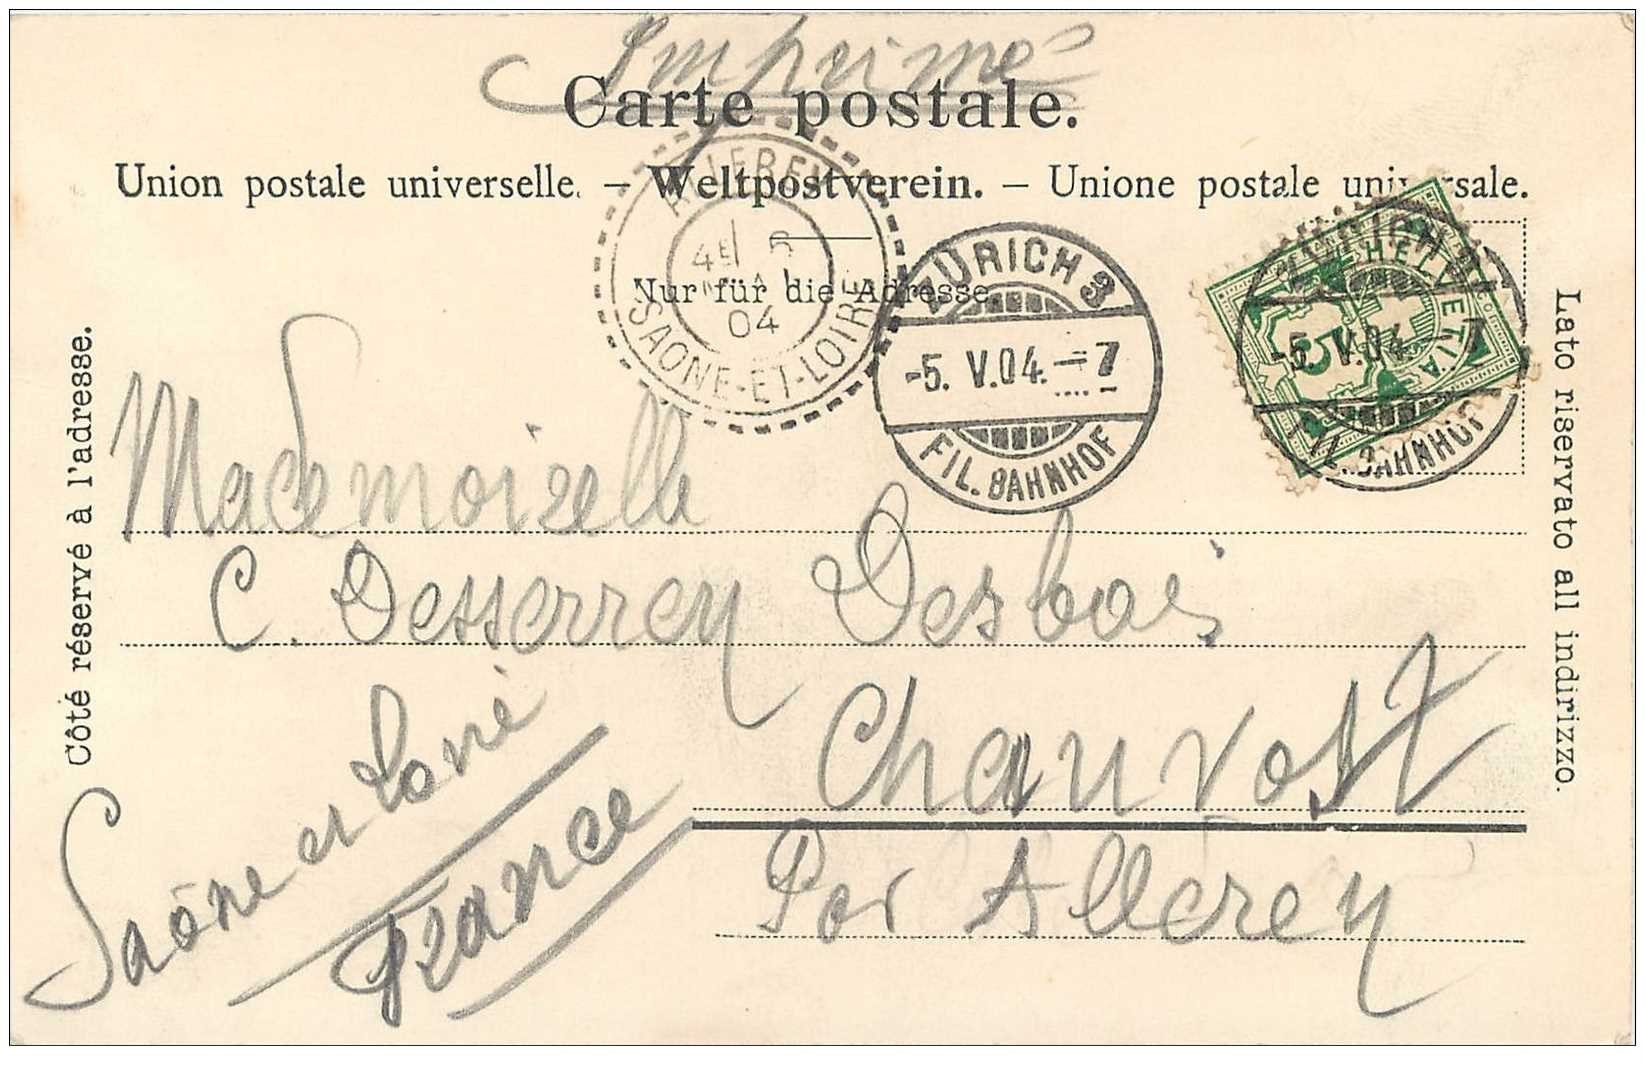 Imprimé
Carte postale.
Union postale universelle. – Weltpostverein. – Unione postale universale.
Nur für die Adresse.
ALLEREY
4E 6
04
SAONE-ET-LOIRE
ZÜRICH 3
-5. V.04. – 7
FIL. BAHNHOF
HELVETIA
5
ZÜRICH 3
-5. V.04. 7
FIL. BAHNHOF
Côté réservé à l'adresse.
Lato riservato all indirizzo.
Mademoiselle
C. Desserrey Desbois
Chauvost
Par Allerey
Saône et Loire
France